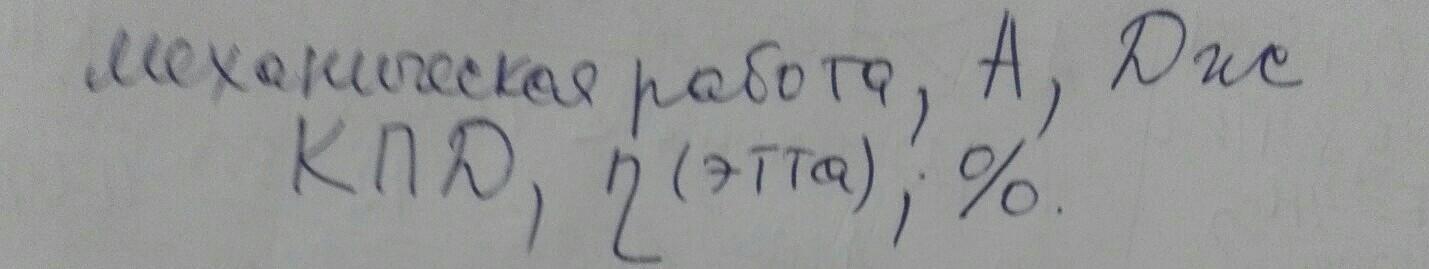 механическая работа, А, Дже
КПД, η (этта), %.